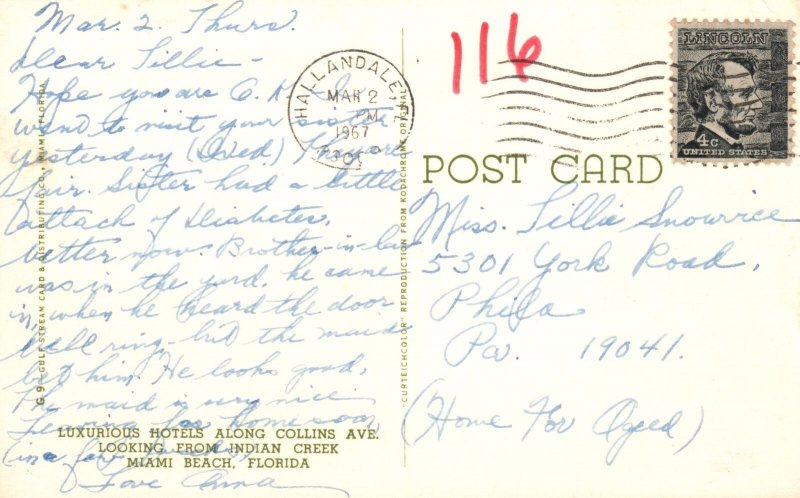 Mar. 2. Thurs.
Dear Tillie -
Hope you are O.K. I
went to visit your sister
yesterday (Wed.)
fair. Sister had a little
attack of Diabetes,
better now. Brother-in-law
was in the yard, he came
in when he heard the door
bell ring - but the maid
bet him. He looks good,
The maid is very nice
for home soon
(in a few
Love Anna
LUXURIOUS HOTELS ALONG COLLINS AVE.
LOOKING FROM INDIAN CREEK
MIAMI BEACH, FLORIDA
G 9 - GULF STREAM CARD & DISTRIBUTING CO., MIAMI, FLORIDA
"CURTEICHCOLOR" REPRODUCTION FROM KODACHROME ORIGINAL
HALLANDALE, FLA
MAR 2
PM
1967
116
LINCOLN
4c
UNITED STATES
POST CARD
Miss. Tillie Snowrice
5301 York Road,
Phila
Pa. 19041.
(Home For Aged)